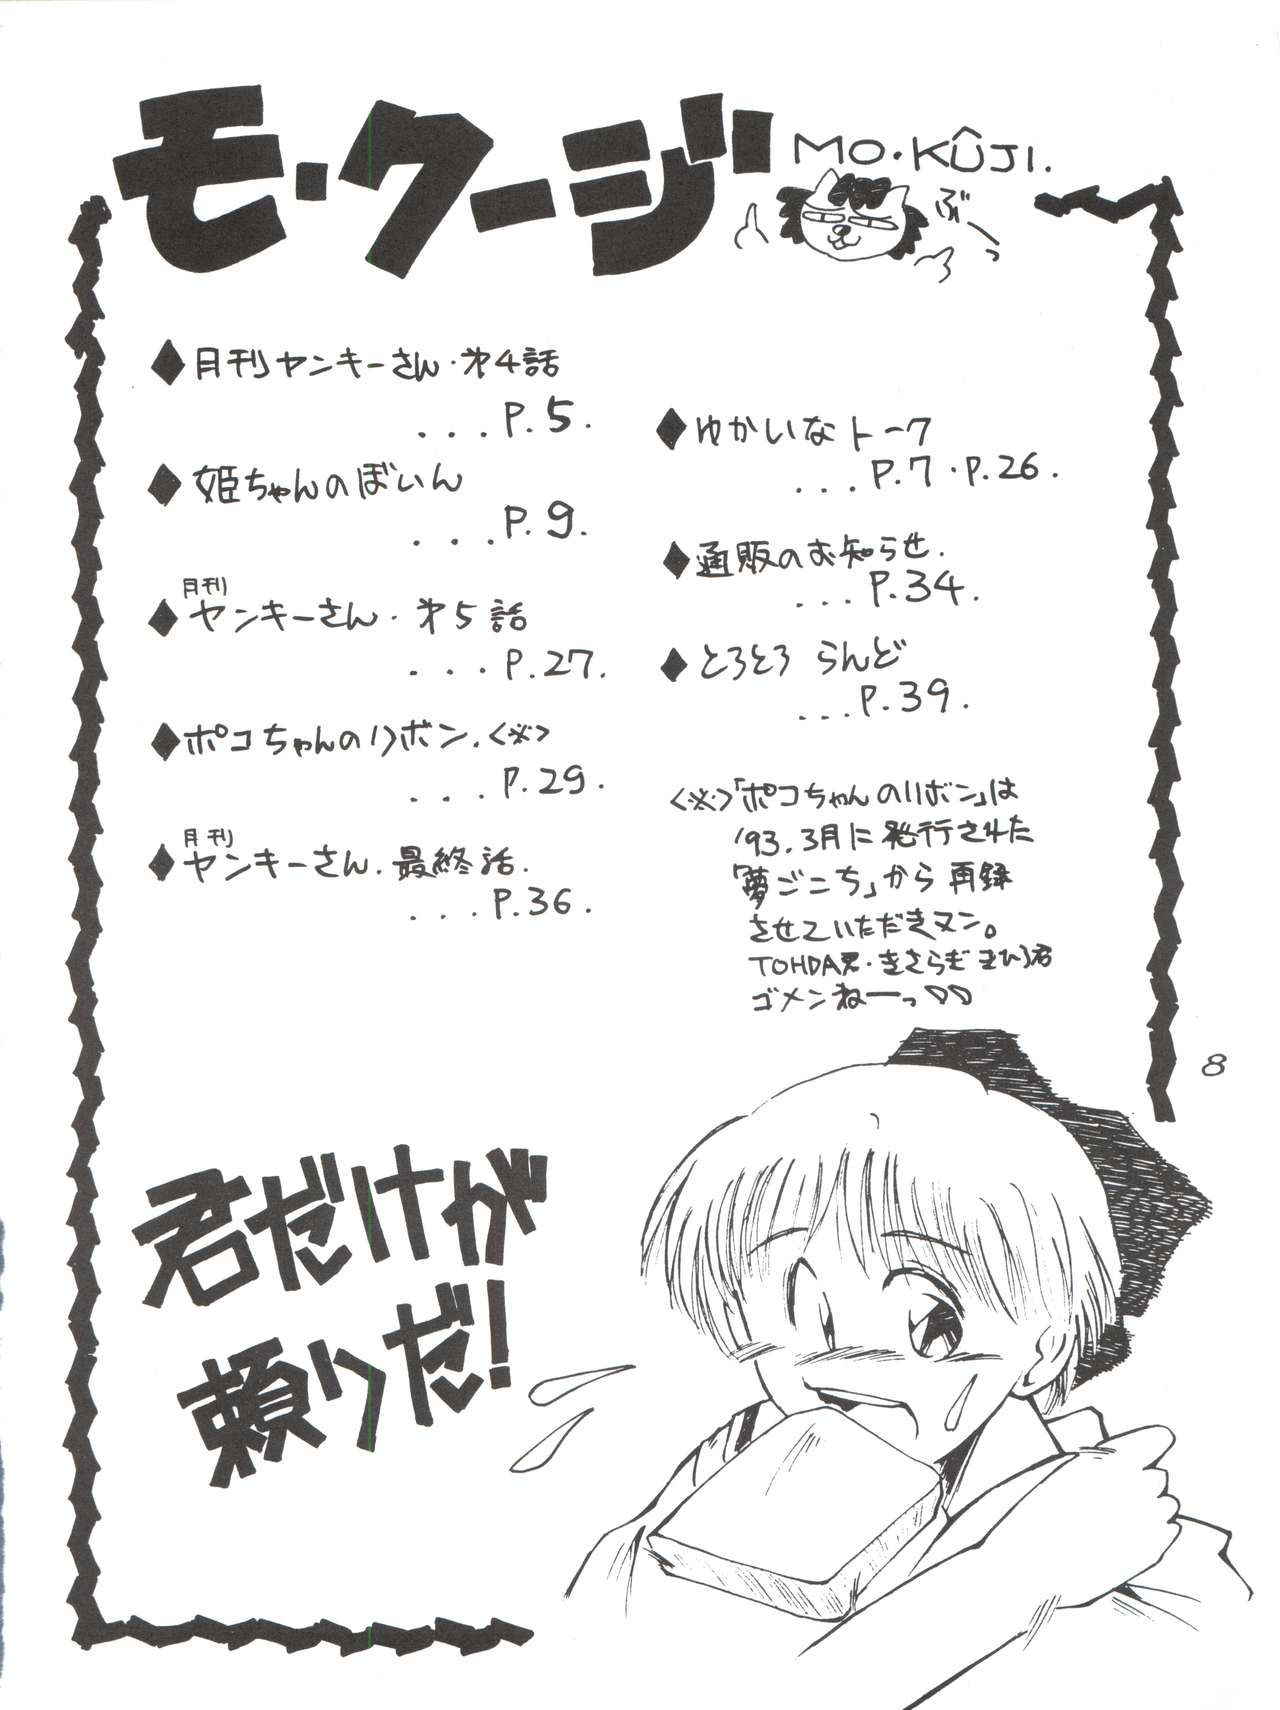 モ・クージ
MO・KÛJI.
ぶーっ
◆月刊ヤンキーさん・第4話
...P.5.
◆姫ちゃんのぼいん
...P.9.
月刊
◆ヤンキーさん・第5話
...P.27.
◆ポコちゃんのリボン.<※>
...P.29.
月刊
◆ヤンキーさん.最終話.
...P.36.
◆ゆかいなトーク
...P.7・P.26.
◆通販のお知らせ.
...P.34.
◆とろとろ らんど
...P.39.
<※>「ポコちゃんのリボン」は
'93.3月に発行された
「夢ごこち」から再録
させていただきマン。
TOHDA君・きさらぎまひろ君
ゴメンねーっ♡♡
8
君だけが
頼りだ!